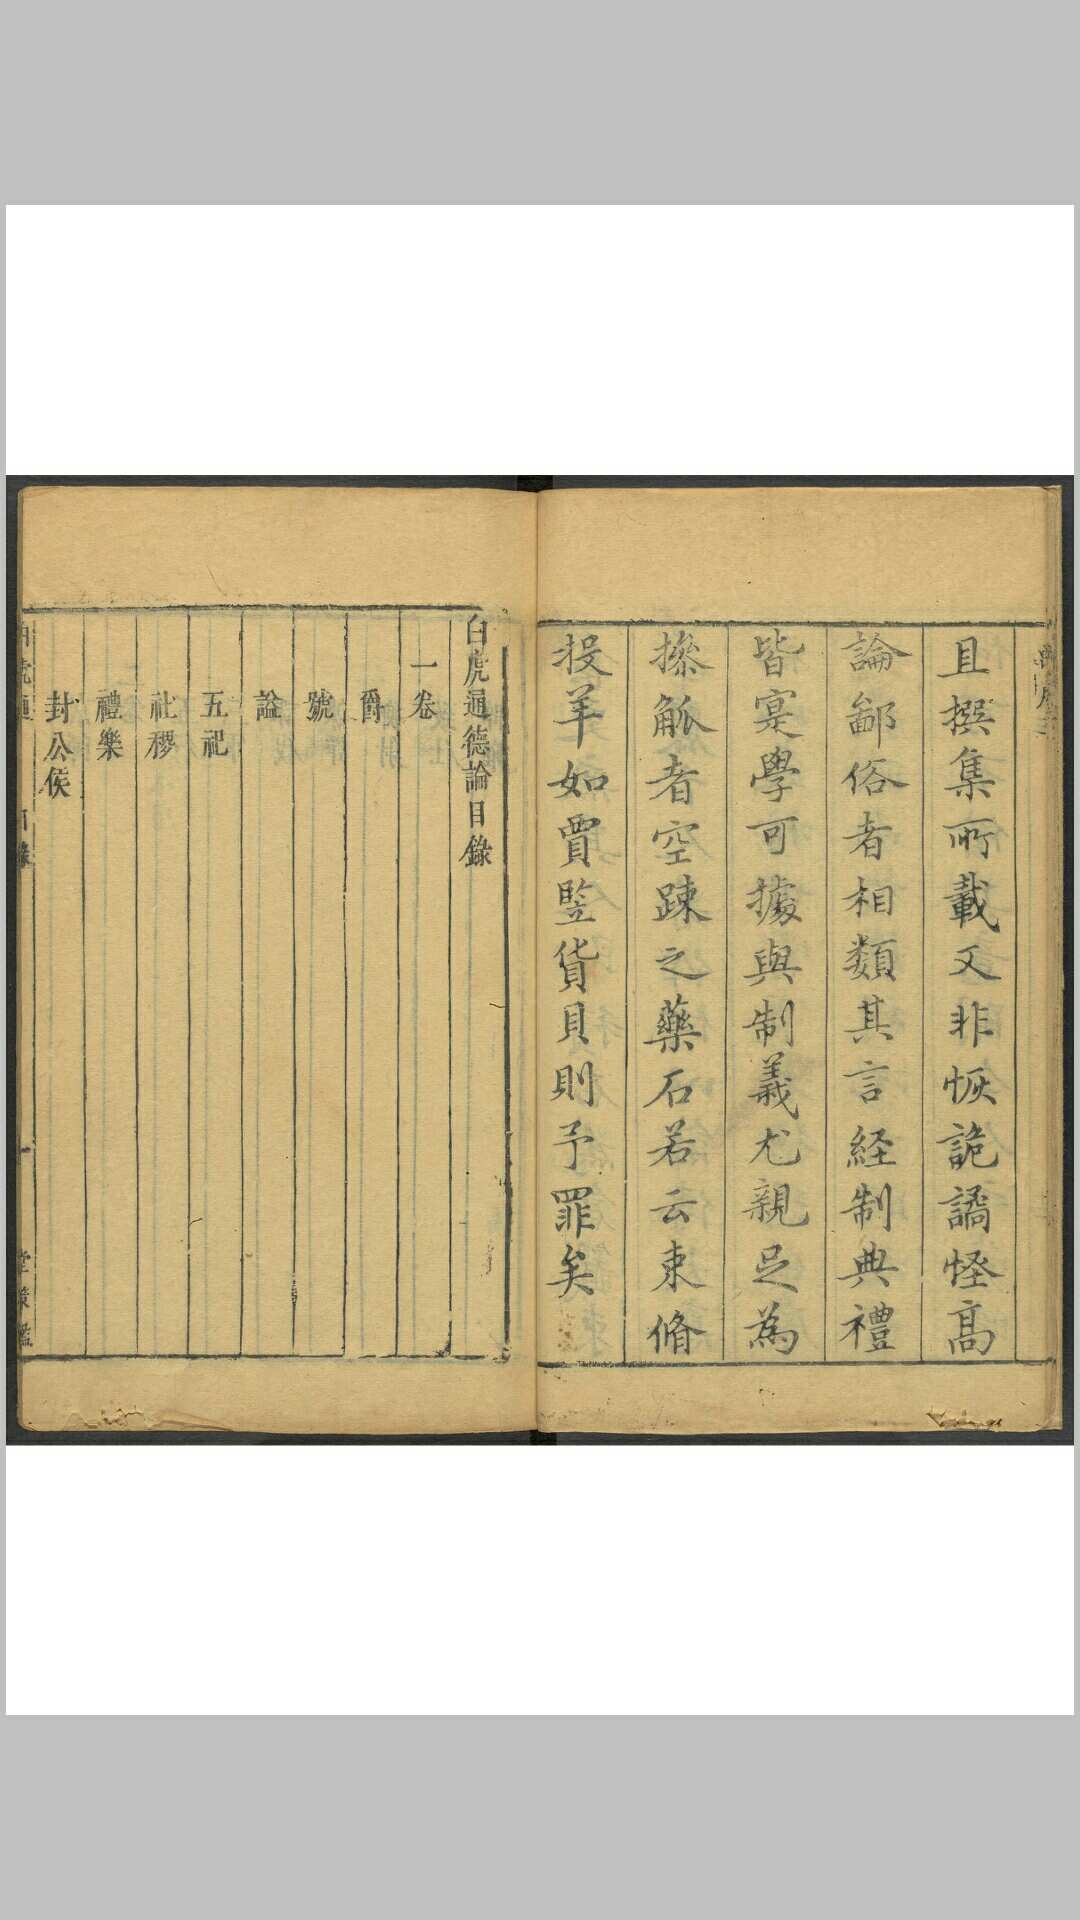 且撰集所載又非恢詭譎怪高
論鄙俗者相類其言経制典禮
皆寔學可據與制義尤親足為
操觚者空踈之藥石若云束脩
投羊如賈豎貨貝則予罪矣
白虎通德論目錄
一卷
爵
號
謚
五祀
社稷
禮樂
封公侯